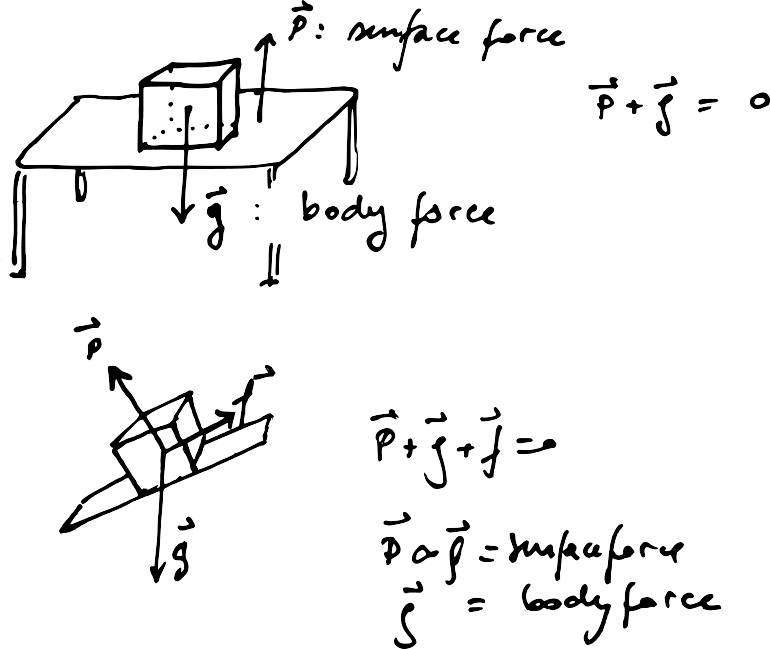 P⃗: surface force
P⃗ + g⃗ = 0
g⃗ : body force
P⃗
f⃗
P⃗ + g⃗ + f⃗ = 0
g⃗
P⃗ a f⃗ = surface force
g⃗ = body force